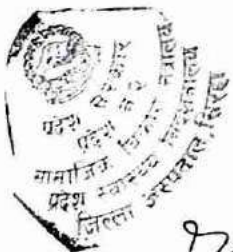 प्रदेश सरकार
प्रदेश नं ५
सामाजिक विकास मन्त्रालय
प्रदेश स्वास्थ्य निर्देशनालय
जिल्ला अस्पताल,